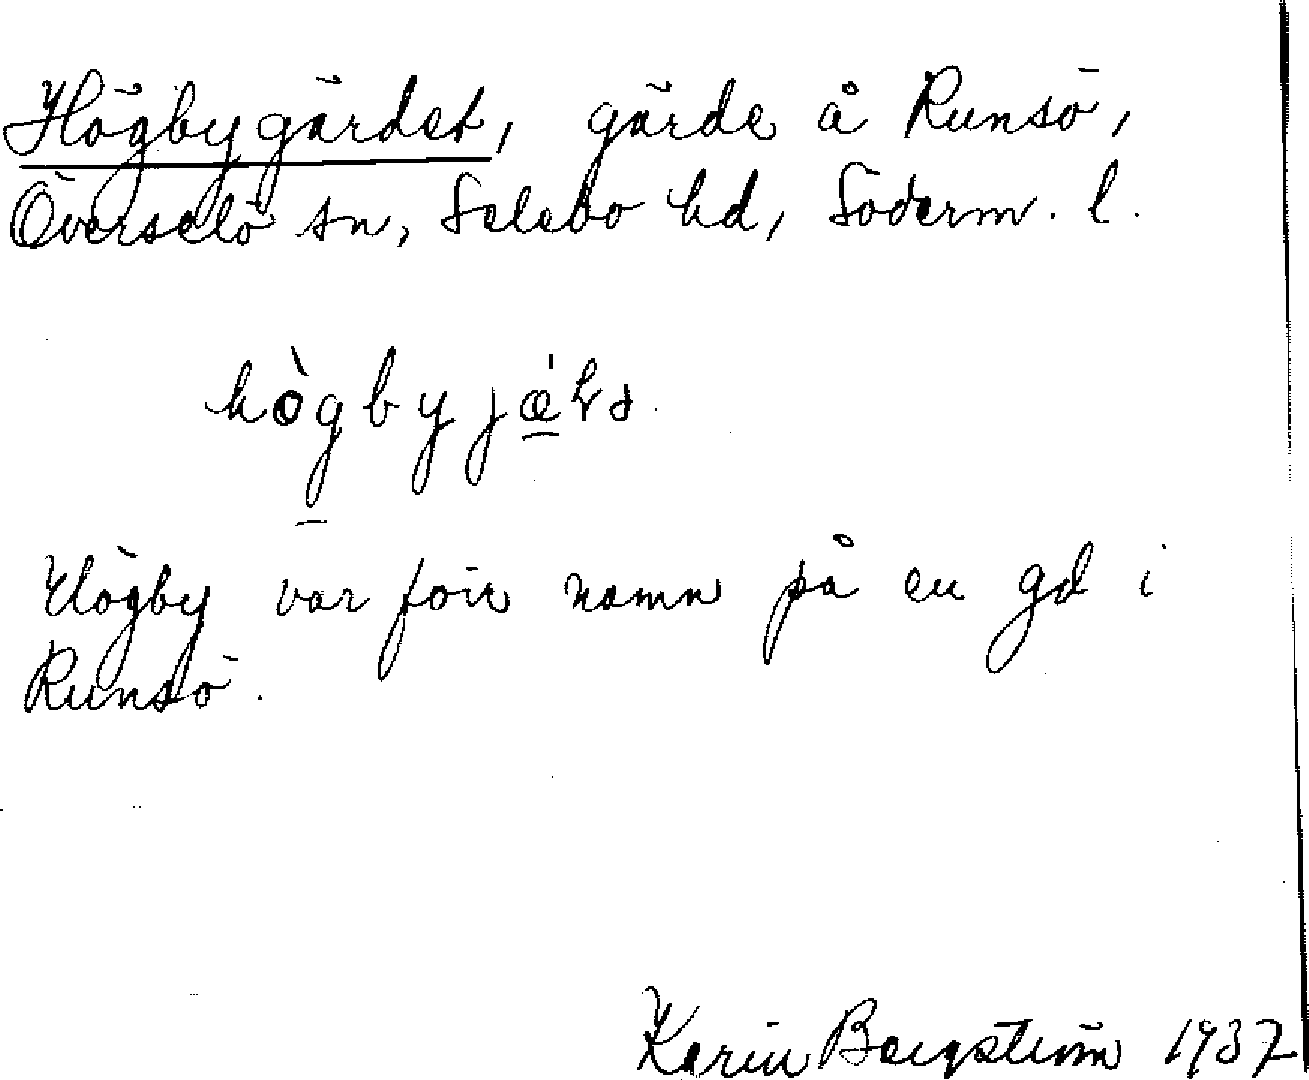 Högbygärdet, gärde å Runsö,
Överselö sn, Selebo hd, Söderm. l.
Högby var förr namn på en gd i
Runsö.
Karin Bergström 1937